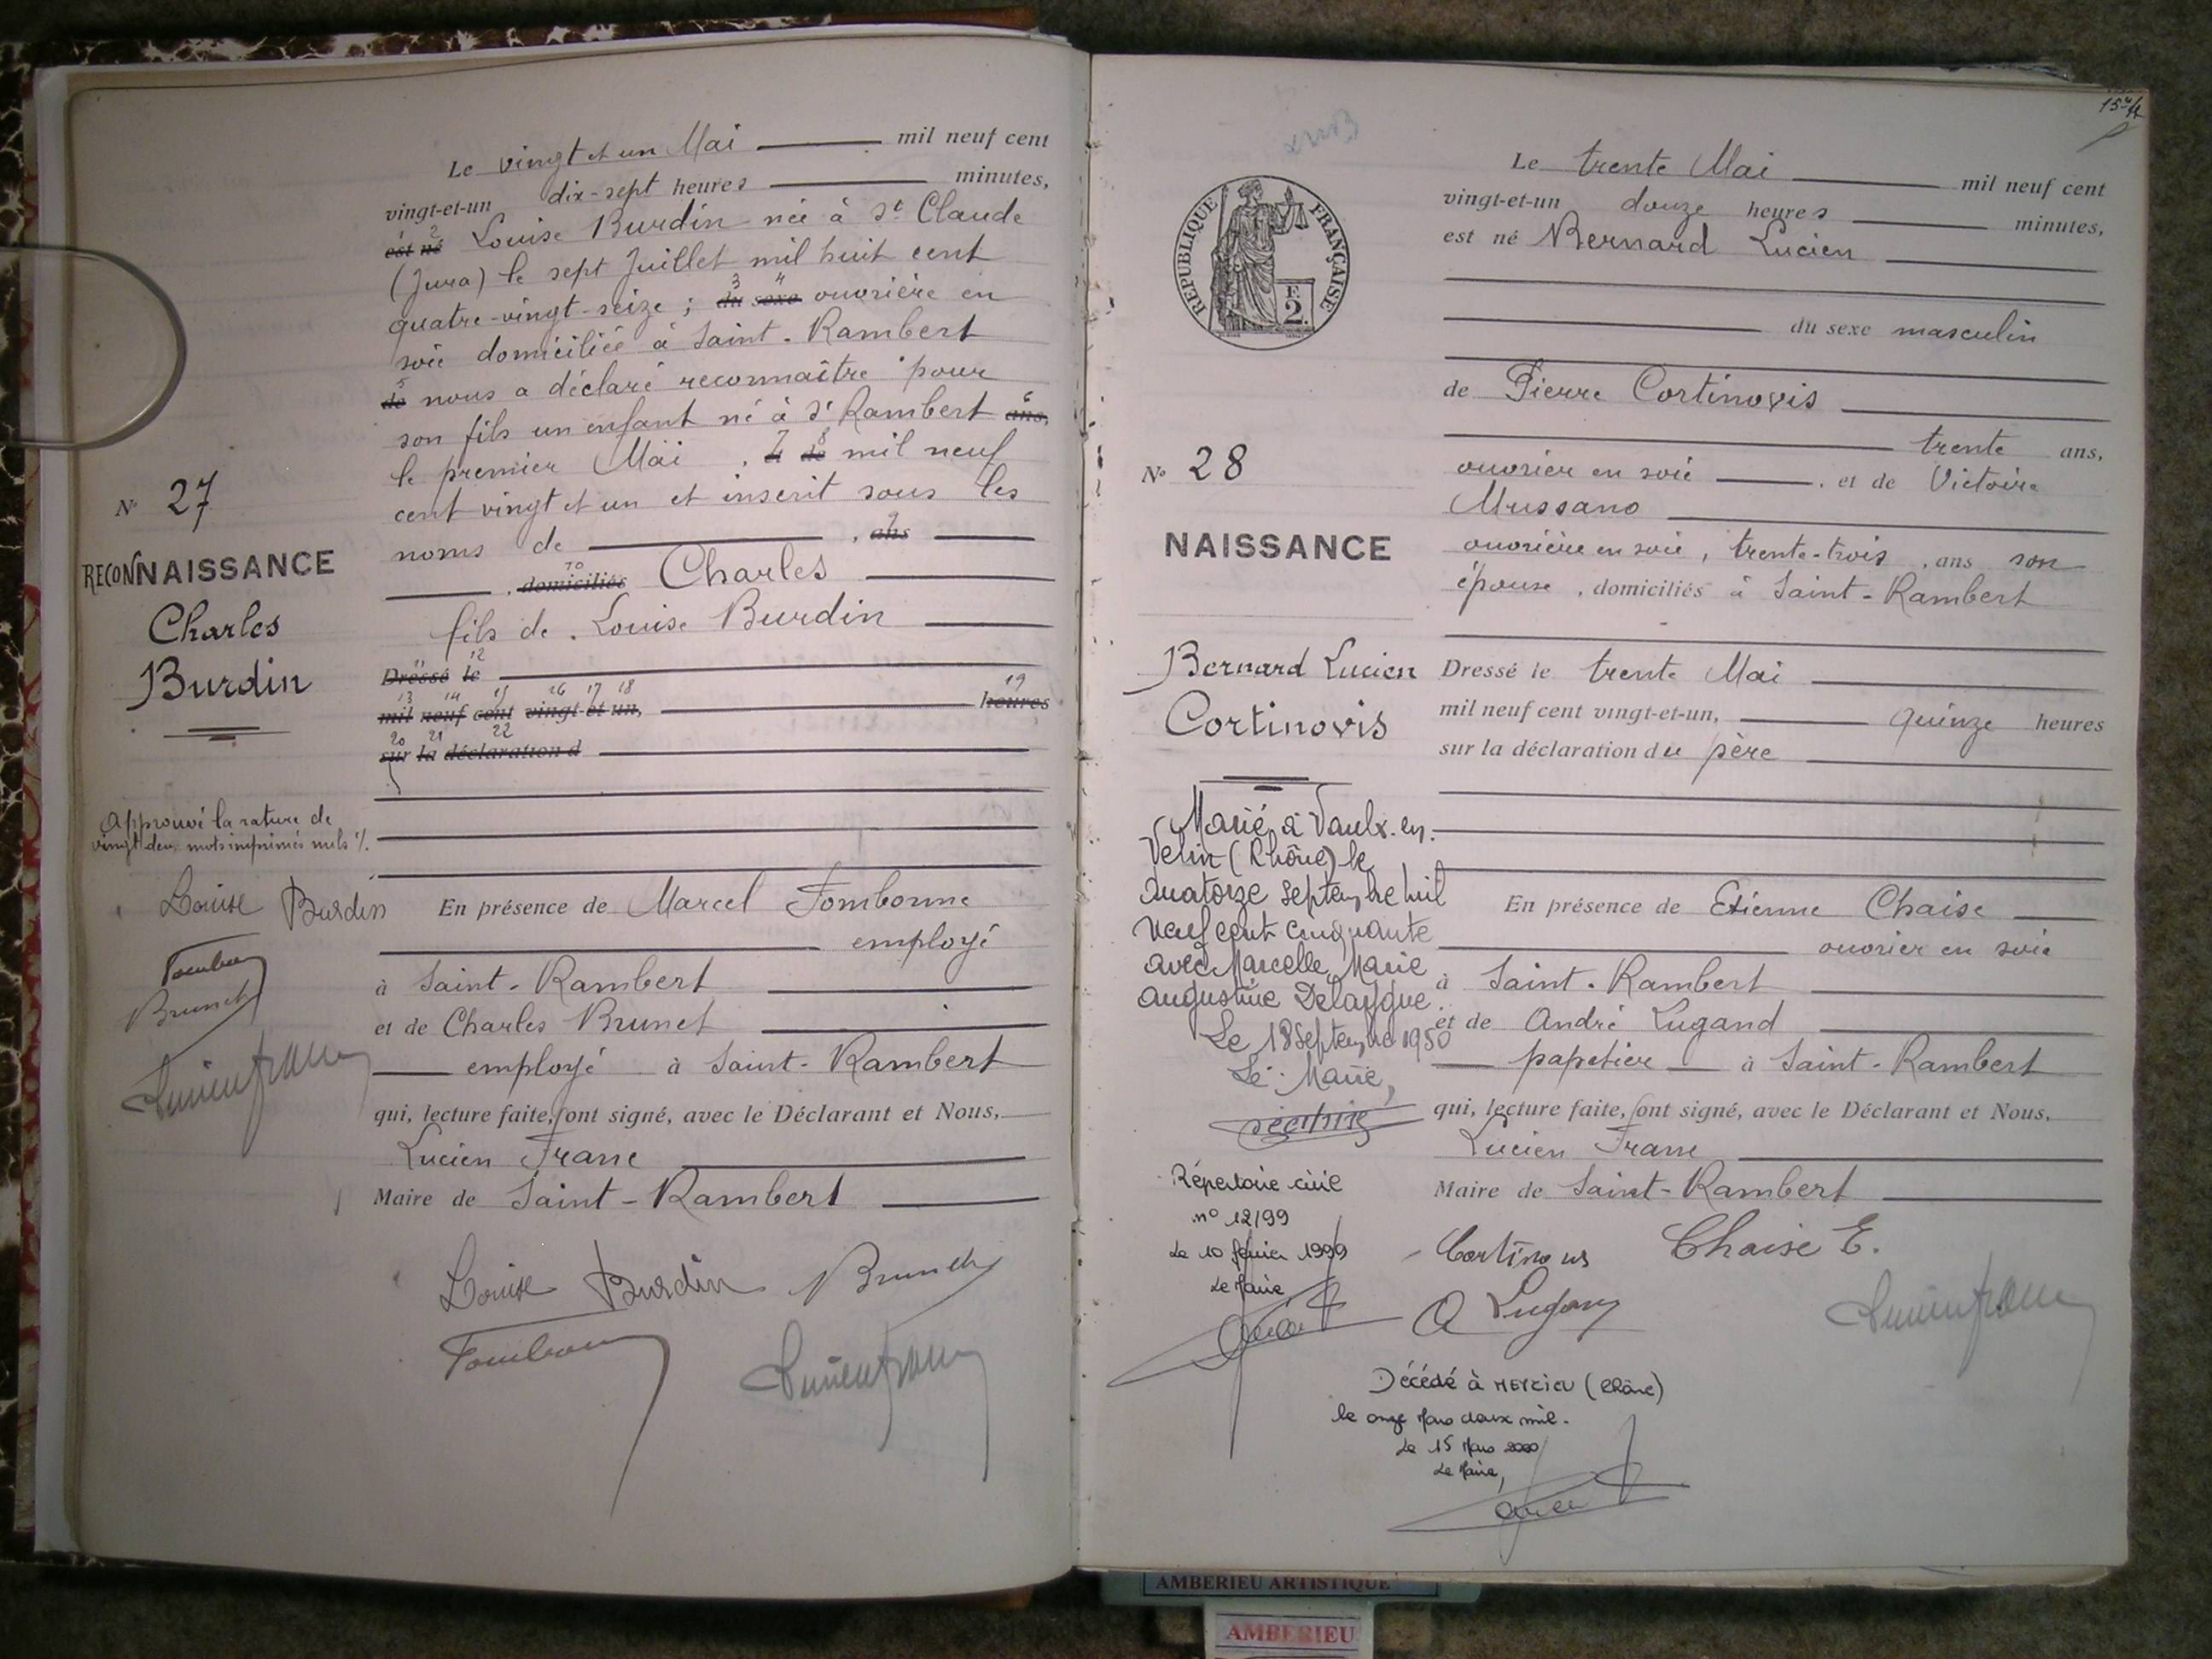 Le vingt et un Mai mil neuf cent
vingt-et-un dix-sept heures minutes,
1 2
est né Louise Burdin née à St Claude
(Jura) le sept Juillet mil huit cent
3 4
quatre-vingt-seize ; du sexe ouvrière en
soie domiciliée à Saint-Rambert
5
de nous a déclaré reconnaître pour
6
son fils un enfant né à St Rambert ans,
7 8
le premier Mai , et de mil neuf
cent vingt et un et inscrit sous les
9
noms de , ans
10
, domiciliés Charles
fils de . Louise Burdin
11 12
Dressé le
13 14 15 16 17 18 19
mil neuf cent vingt-et-un, heures
20 21 22
sur la déclaration d
N° 27
RECONNAISSANCE
Charles
Burdin
Approuvé la rature de
vingt deux mots imprimés nuls
Louise Burdin
Brunet
En présence de Marcel Fombonne
employé
à Saint-Rambert
et de Charles Brunet
employé à Saint-Rambert
qui, lecture faite, ont signé, avec le Déclarant et Nous,
Lucien Franc
Maire de Saint-Rambert
Louise Burdin Brunet
Lucien Franc
15
RÉPUBLIQUE FRANÇAISE
F.
2.
Le trente Mai mil neuf cent
vingt-et-un douze heures minutes,
est né Bernard Lucien
du sexe masculin
de Pierre Cortinovis
trente ans,
ouvrier en soie , et de Victoire
Mussano
ouvrière en soie, trente-trois , ans son
épouse , domiciliés à Saint-Rambert
N° 28
NAISSANCE
Bernard Lucien
Cortinovis
Dressé le trente Mai
mil neuf cent vingt-et-un, quinze heures
sur la déclaration du père
Marié à Vaulx-en-
Velin (Rhône) le
quatorze septembre mil
neuf cent cinquante
avec Marcelle Marie
Augustine
Le 18 septembre 1950
Le Maire,
En présence de Etienne Chaise
ouvrier en soie
à Saint-Rambert
et de André Lugand
papetier à Saint-Rambert
qui, lecture faite, ont signé, avec le Déclarant et Nous,
Lucien Franc
Maire de Saint-Rambert
Répertoire civil
n° 12/99
Le 10 février 1999
Le Maire
Cortinovis Chaise E.
A Lugand
Lucien Franc
Décédé à MEYZIEU (Rhône)
le onze Mars deux mil.
Le 15 Mars 2000
Le Maire,
AMBERIEU ARTISTIQUE
AMBERIEU